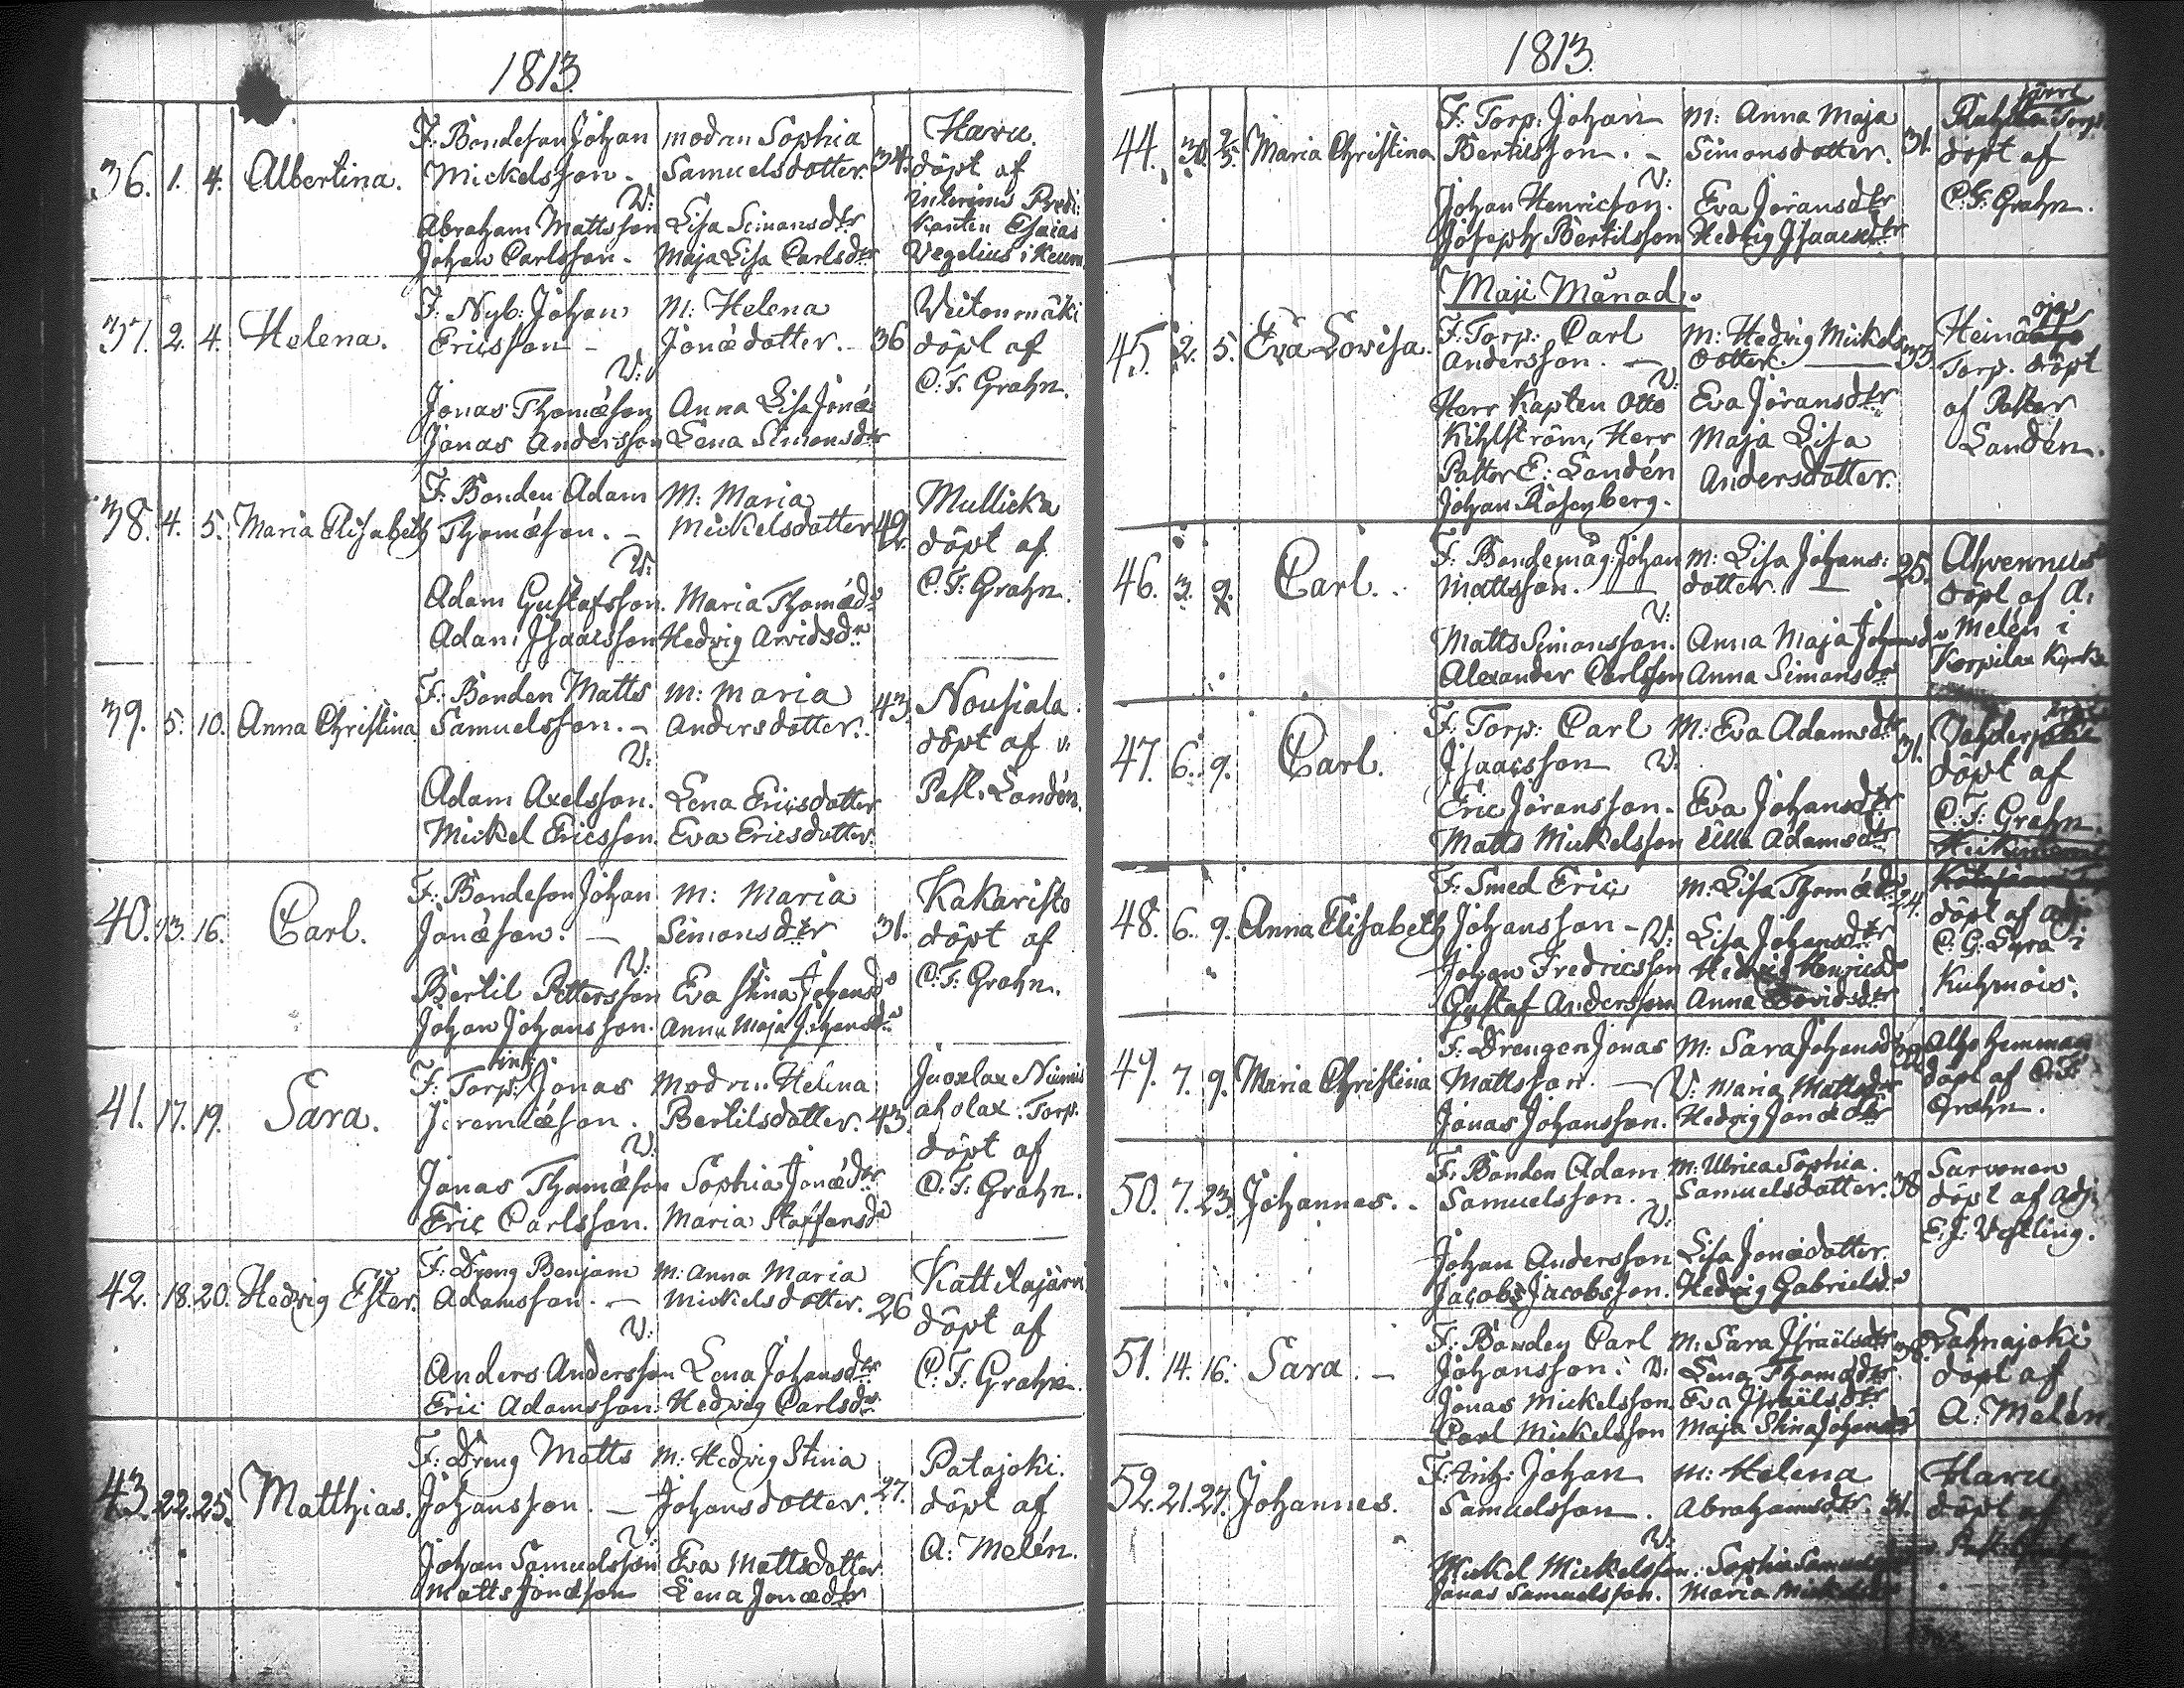 1813
36. 1. 4. Albertina. F: Bondeson Johan modren Sophia 34. Havu.
Mickelsson - Samuelsdotter döpt af
V: interims Predi-
Abraham Mattsson Lisa Simonsdtr kanten Esaias
Johan Carlsson - Maja Lisa Carlsdtr Vegelius i Keuru
37. 2. 4. Helena. F: Nyb: Johan M: Helena 36 Veitonmäki
Ericsson - Jonædotter. döpt af
V: C: F: Grahn.
Jonas Thomæson Anna Lisa Jonæ
Jonas Andersson Lena Simonsdtr
38. 4. 5. Maria Elisabeth F: Bonden Adam M: Maria 42. Mullicka
Thomæson. - Mickelsdotter döpt af
V: C: F: Grahn.
Adam Gustafsson. Maria Thomædr
Adam Isaacsson Hedvig Arvidsdr
39. 5. 10. Anna Christina F: Bonden Matts M: Maria 43. Nousiala
Samuelsson. - Andersdotter. döpt af v:
V: Past. Landén.
Adam Axelsson. Lena Ericsdotter
Mickel Ericsson. Eva Ericsdotter.
40. 13. 16. Carl. F: Bondeson Johan M: Maria 31. Kakaristo
Jonæson. - Simonsdtr döpt af
V: C: F: Grahn.
Bertil Pettersson Eva Stina Johansdr
Johan Johansson. Anna Maja Johansdr
41. 17. 19. Sara. F: Torp: Jonas Modren Helena 43. Juoxlax Niemis
Jeremiæson. Bertilsdotter. aholax: Torp.
V: döpt af
Jonas Thomæson Sophia Jonædtr C: F: Grahn.
Eric Carlsson. Maria Staffansdr
42. 18. 20. Hedvig Ester. F: Dreng Benjam M: Anna Maria 26 Kattilajärvi
Adamsson. - Mickelsdotter. döpt af
V: C: F: Grahn.
Anders Andersson Lena Johansdtr
Eric Adamsson. Hedvig Carlsdr
43. 22. 25. Matthias. F: Dreng Matts M: Hedvig Stina 27. Patajoki.
Johansson. - Johansdotter. döpt af
V: A: Melén.
Johan Samuelsson Eva Mattsdotter
Matts Jonæson Lena Jonædtr
1813.
44. 30. Maria Christina F: Torp: Johan M: Anna Maja 31. Torp
Bertilsson. - Simonsdotter. döpt af
V: C: F: Grahn.
Johan Henricson. Eva Jöransdtr
Joseph Bertilsson Hedvig Isaacsdtr
Maji Månad.
45. 2. 5. Eva Lovisa. F: Torp: Carl M: Hedvig Mickels 33. Heinä oja
Andersson. - dotter. Torp. döpt
V: af Pastor
Herr Kapten Otto Eva Jöransdtr Landén.
Kihlström, Herr Maja Lisa
Pastor E: Landén Andersdotter.
Johan Rosenberg.
46. 3. 9. Carl. F: Bondemåg: Johan M: Lisa Johans: 25. Ahvennus
Mattsson. dotter. döpt af A:
V: Melén i
Matts Simonsson. Anna Maja Johansdr Korpilax Kyrka
Alexander Carlsson Anna Simonsdr
47. 6. 9. Carl. F: Torp: Carl M: Eva Adamsdtr 31.
Isaacsson V: döpt af
Eric Jöransson. Eva Johansdtr C: F: Grahn.
Matts Mickelsson Ulla Adamsdr
48. 6. 9. Anna Elisabeth F: Smed Eric M: Lisa Thomædr 24.
Johansson - V: Lisa Johansdtr döpt af Adj.
Johan Fredricsson Hedvig Henricsdr C: G: Lyra i
Gustaf Andersson Anna Davidsdtr Kuhmois.
49. 7. 9. Maria Christina F: Drengen Jonas M: Sara Johansdr Alho hemman
Mattsson. - V: Maria Mattsdr döpt af C: F:
Jonas Johansson. Hedvig Jonædtr Grahn.
50. 7. 23. Johannes. F: Bonden Adam M: Ulrica Sophia 38 Survonen
Samuelsson. - Samuelsdotter. döpt af Adj.
V: E: J: Vestling.
Johan Andersson Lisa Jonædotter.
Jacob Jacobsson. Hedvig Gabrielsdr
51. 14. 16. Sara. - F: Bonden Carl M: Sara Israelsdtr Sahrajoki
Johansson. V: Lena Thomædtr döpt af
Jonas Mickelsson Eva Israelsdtr A: Melén
Carl Mickelsson Maja Stina Johansdr
52. 21. 27. Johannes. F: Inh: Johan M: Helena 31. Havu
Samuelsson. Abrahamsdtr. döpt af
V:
Mickel Mickelsson. Sophia
Jonas Samuelsson. Maria